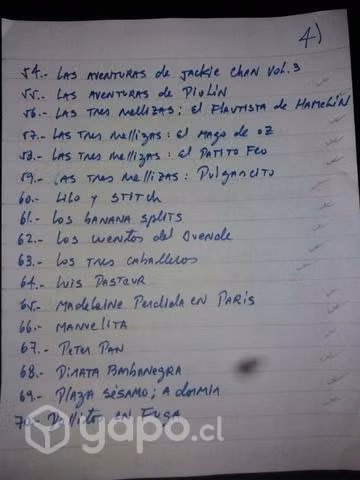 4)
54.- Las aventuras de Jackie Chan Vol. 3
55.- Las aventuras de Piolin
56.- Las tres mellizas; El Flautista de Hamelin
57.- Las tres mellizas: El mago de oz
58.- Las tres mellizas: El Patito Feo
59.- Las tres mellizas: Pulgarcito
60.- Lilo y Stitch
61.- Los banana splits
62.- Los cuentos del Duende
63.- Los tres caballeros
64.- Luis Pasteur
65.- Madeleine Perdida en París
66.- Manuelita
67.- Peter Pan
68.- Pirata Barbanegra
69.- Plaza sésamo; a dormir
70.- Pollitos en Fuga
yapo.cl